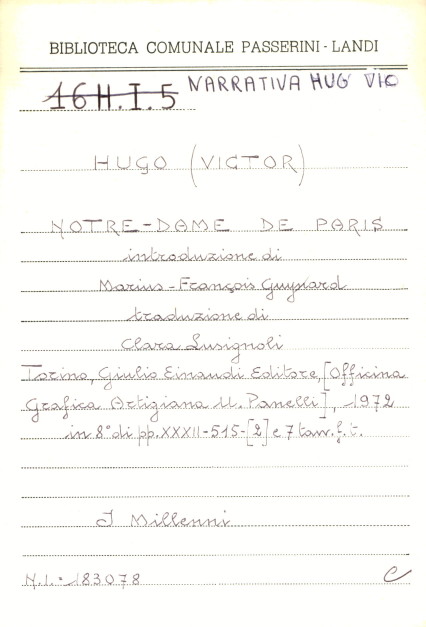 BIBLIOTECA COMUNALE PASSERINI - LANDI
16 H. I. 5 NARRATIVA HUG VIC
HUGO (VICTOR)
NOTRE-DAME DE PARIS
introduzione di
Marius-François Guyard
traduzione di
Clara Lusignoli
Torino, Giulio Einaudi Editore, [Officina
Grafica Artigiana U. Panelli], 1972
in 8° di pp. XXXII-515-[2] e 7 tav. f. t.
I Millenni
N.I. 183078 C